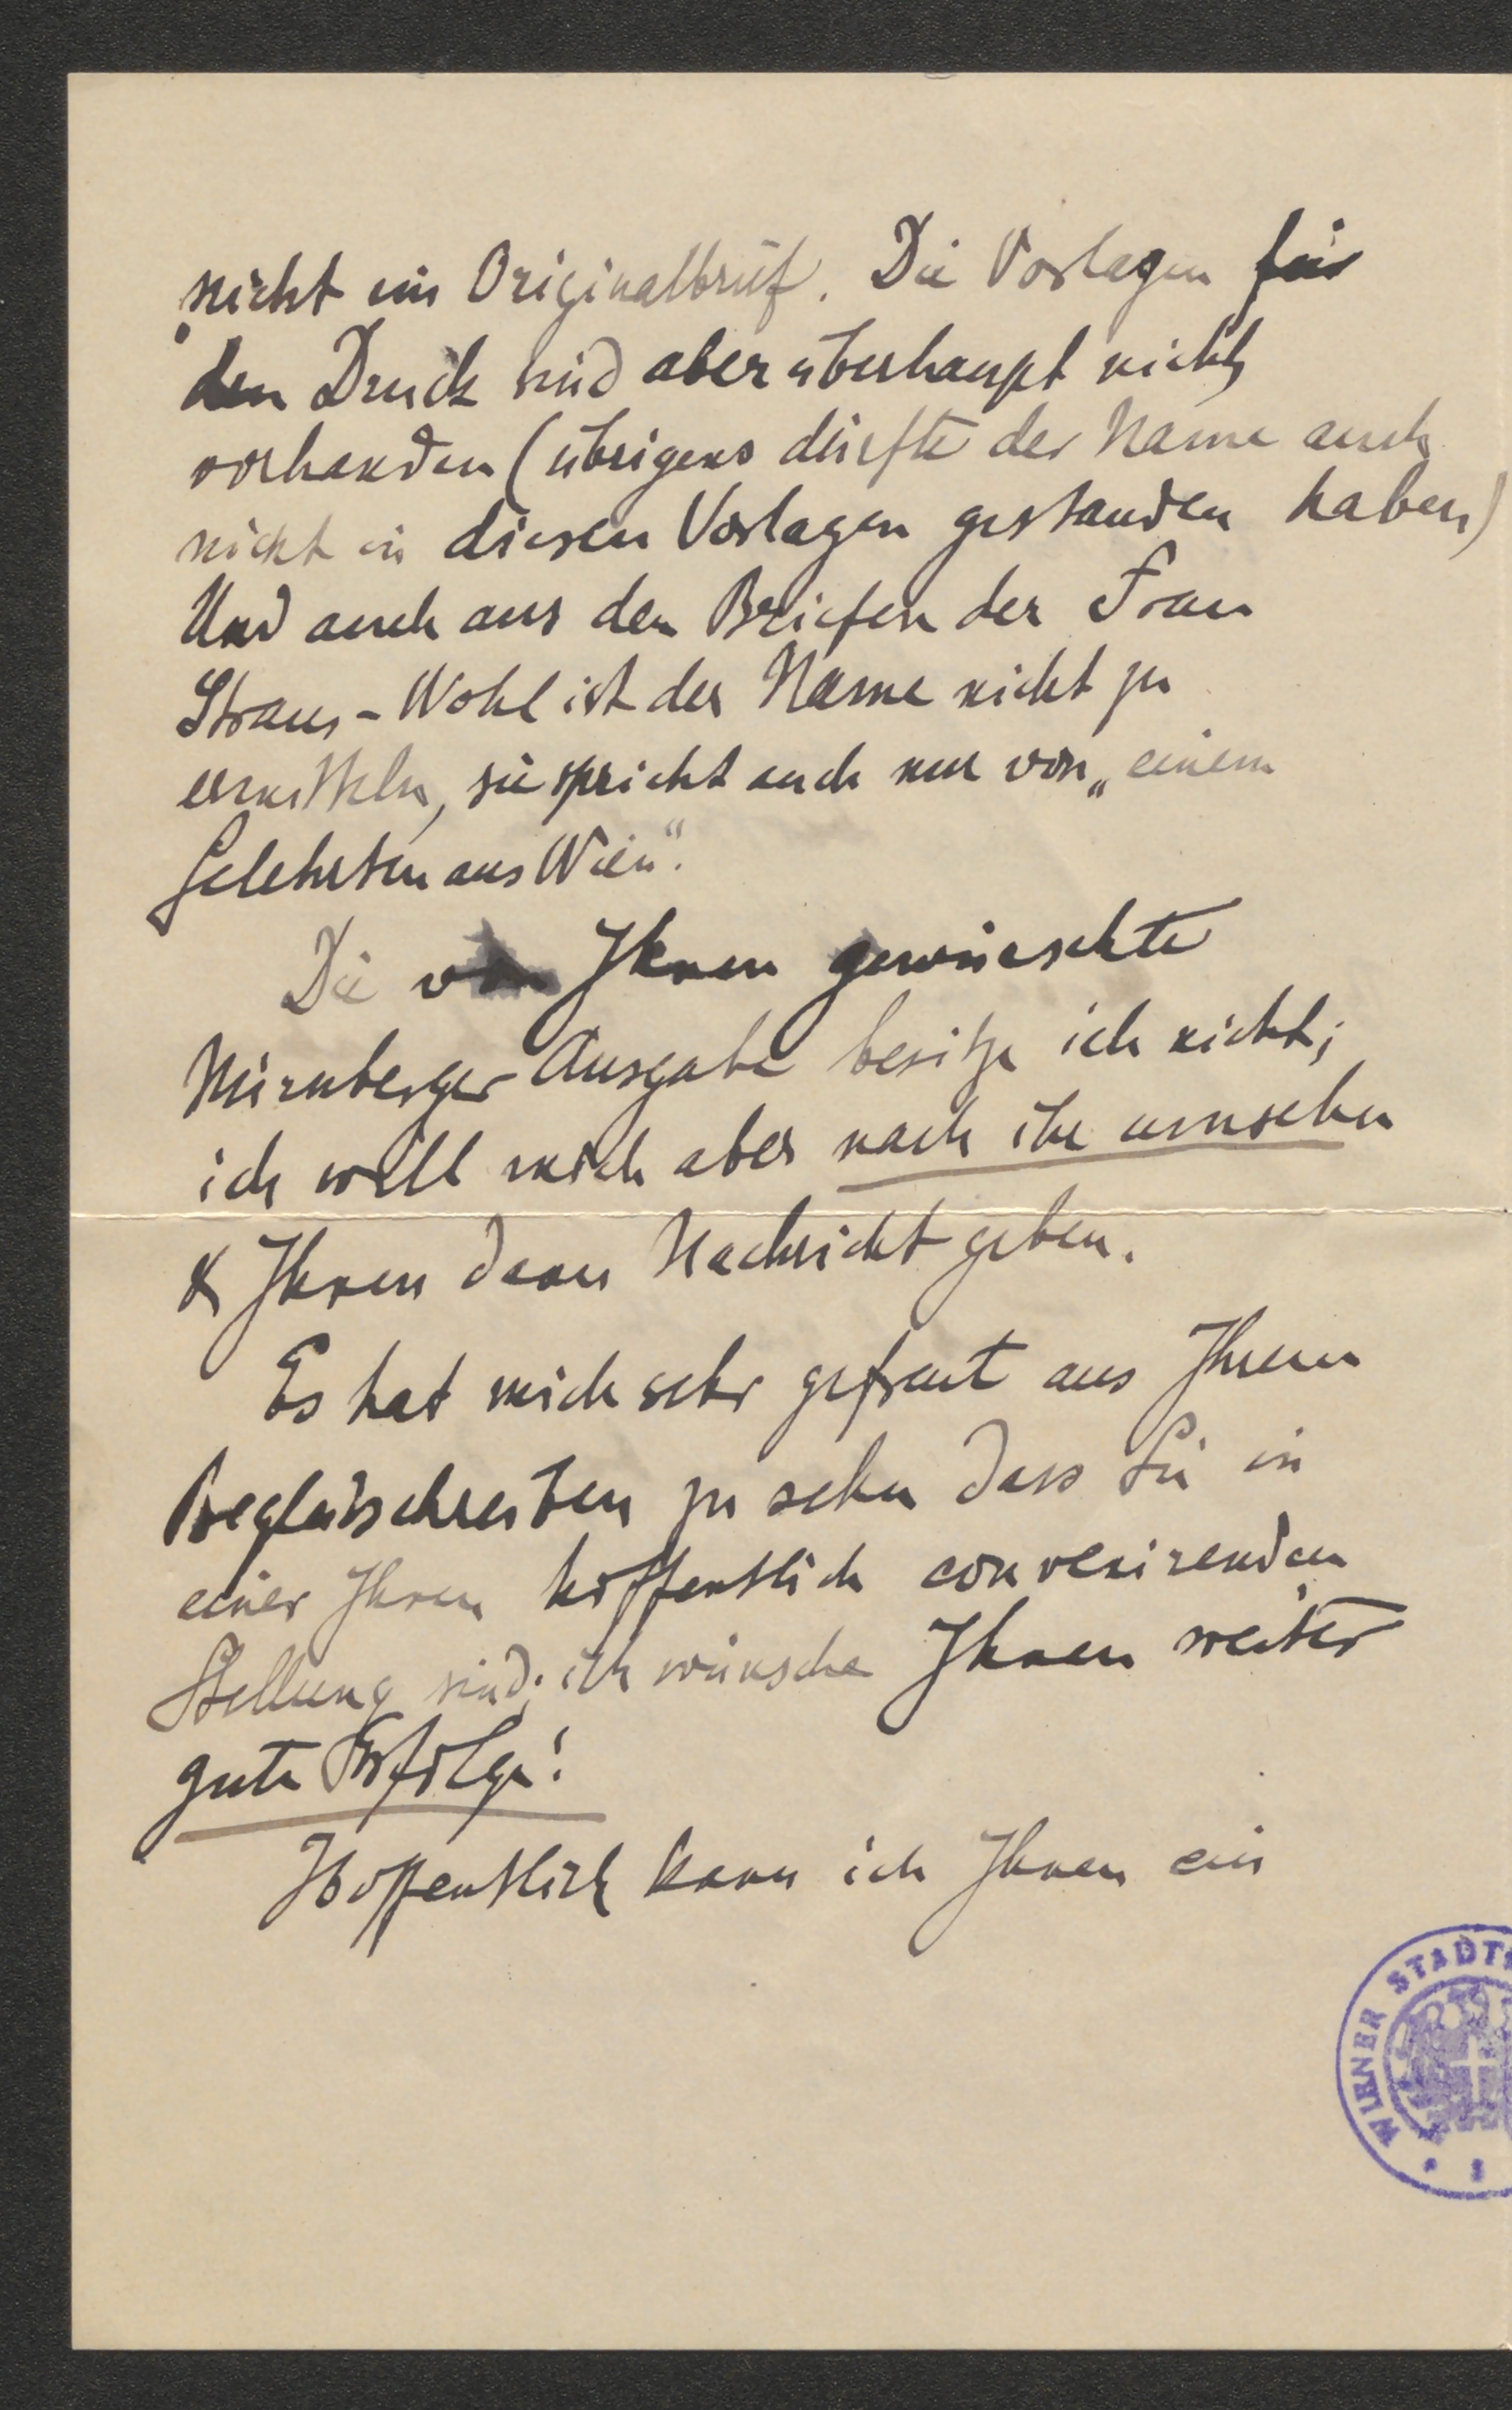 nicht ein Originalbrief. Die Vorlagen für
den Druck sind aber überhaupt nicht
vorhanden (übrigens dürfte der Name auch
nicht in diesen Vorlagen gestanden haben)
Und auch aus den Briefen der Frau
Straus-Wohl ist der Name nicht zu
ermitteln, sie spricht auch nur von „einem
Gelehrten aus Wien".
Die von Ihnen gewünschte
Nürnberger Ausgabe besitze ich nicht;
ich will mich aber nach ihr umsehen
& Ihnen dann Nachricht geben.
Es hat mich sehr gefreut aus Ihrem
Begleitschreiben zu sehen dass Sie in
einer Ihnen hoffentlich convenirenden
Stellung sind; ich wünsche Ihnen weiter
gute Erfolge!
Hoffentlich kann ich Ihnen ein
WIENER STADT